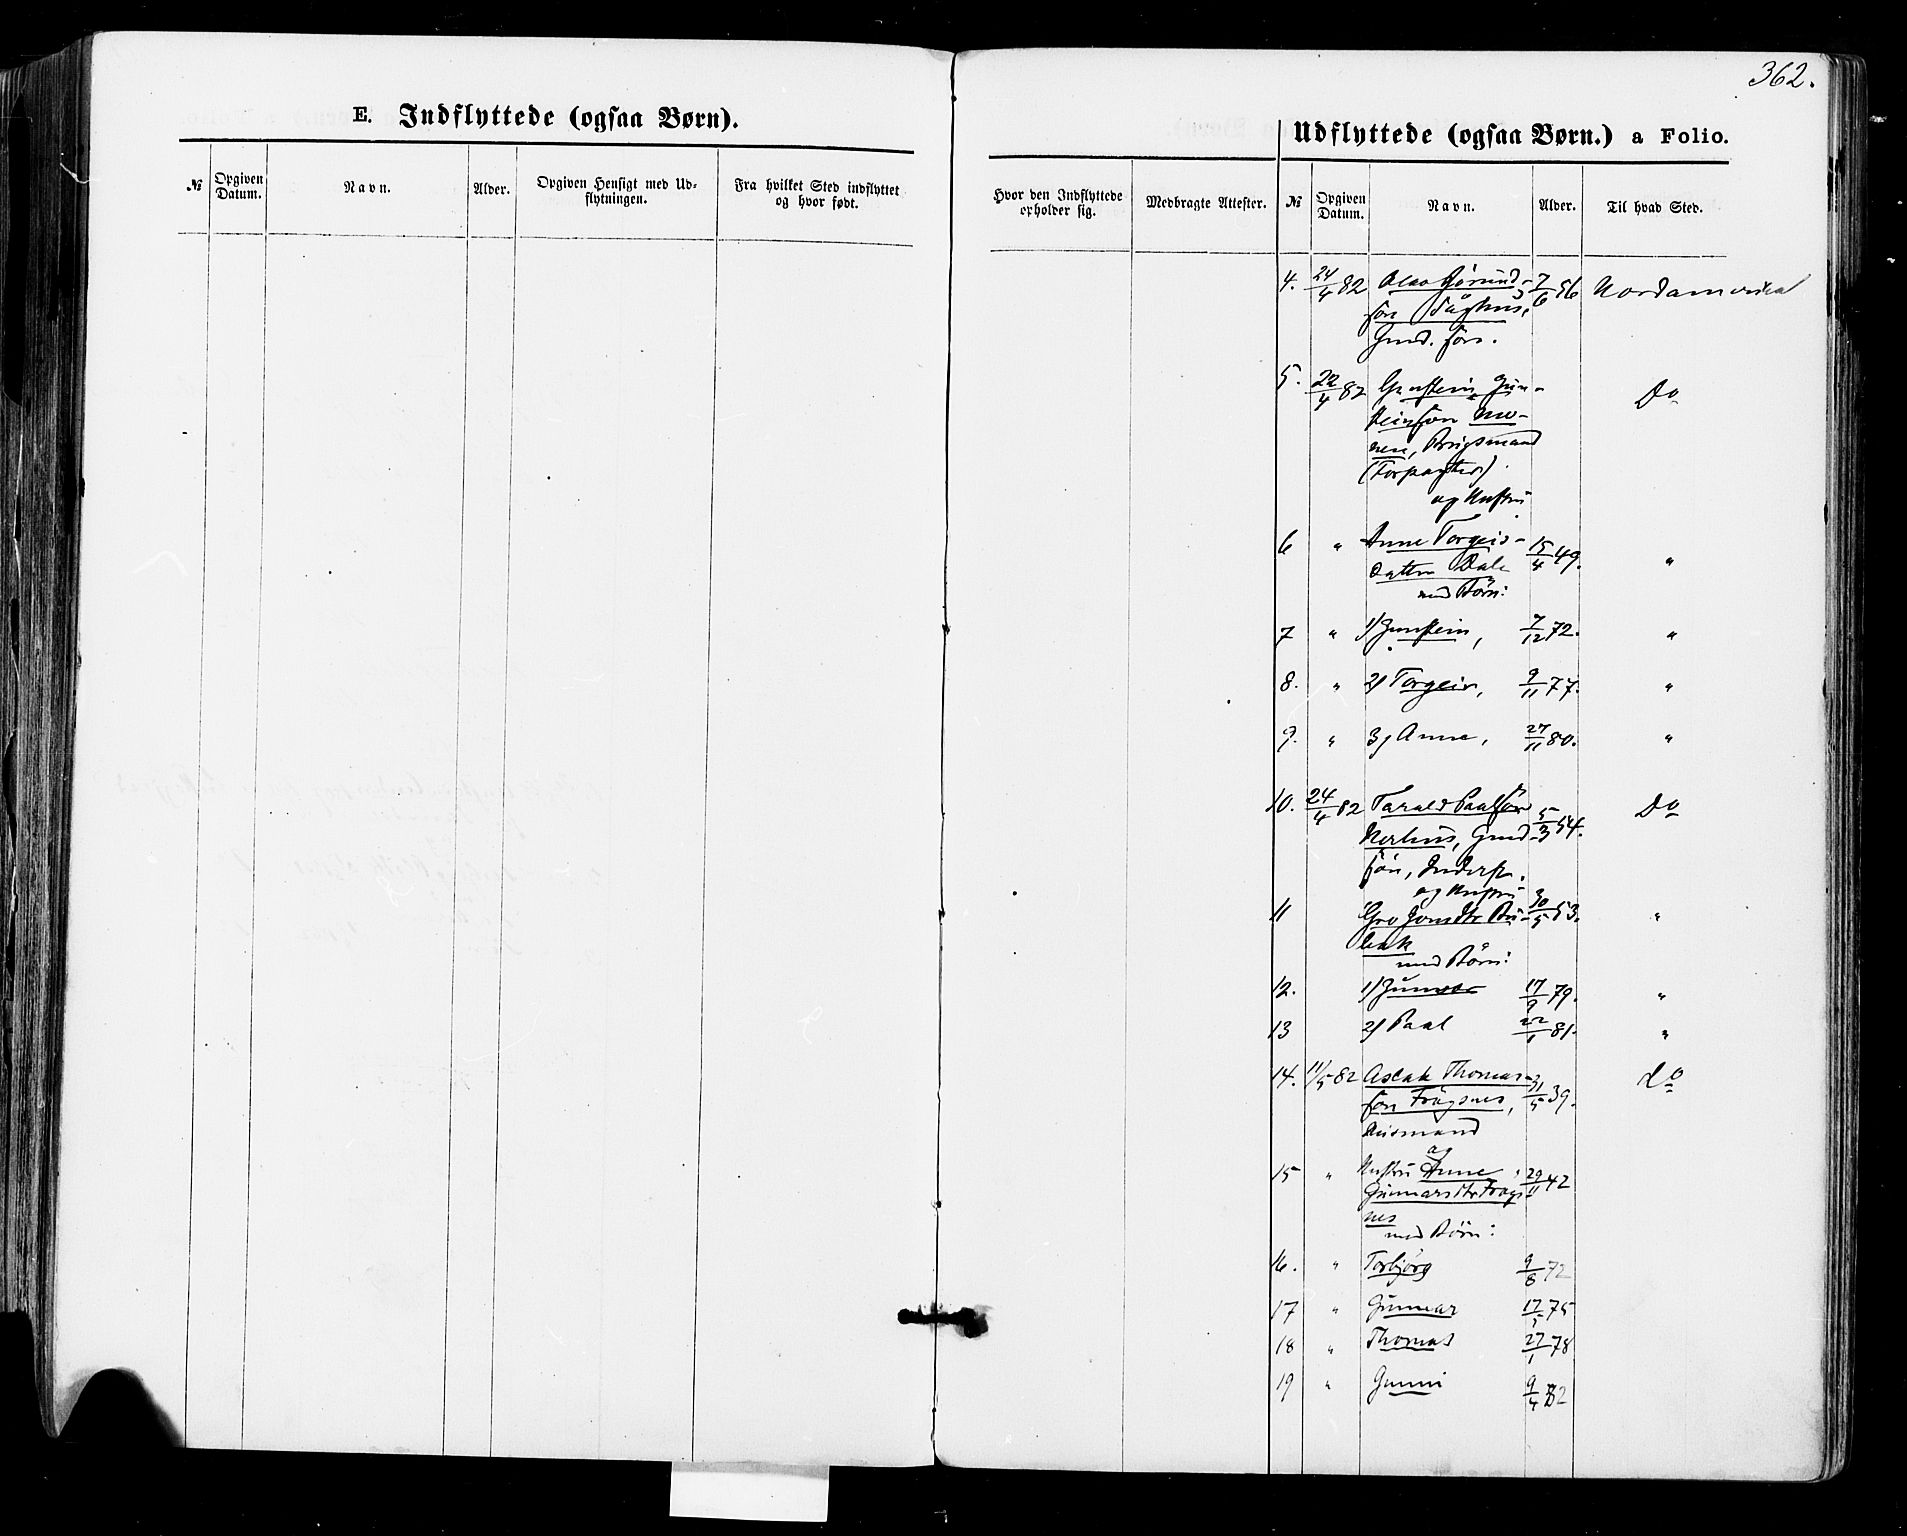 362.
E. Indflyttede (ogsaa Børn).
№ Opgiven Datum. Navn. Alder. Opgiven Hensigt med Udflytningen. Fra hvilket Sted indflyttet og hvor født.
Udflyttede (ogsaa Børn.) a Folio.
Hvor den Indflyttede opholder sig. Medbragte Attester. № Opgiven Datum. Navn. Alder. Til hvad Sted.
4. 24/4 82 Olav 7/6 56 Nordamerika
Gmd. søn.
5. 22/4 82 Gunstein Gun- Do
steinson Mo-
nen, Brugsmand
(Forpagter)
og Hustru
6 " Anne Torgeis- 15/4 49. "
datter Dale
med Børn:
7 " 1) Gunstein, 7/12 72. "
8. " 2) Torgeir, 9/11 77. "
9. " 3) Anne, 27/11 80. "
10. 24/4 82 Tarald Paalsøn Do
Nerhus, Gmd- 5/3 54.
søn, Inderst.
og Hustru
11 Gro Jonsdtr 30/5 53. "
med Børn:
12. 1) Gunnar 17/9 79. "
13 2) Paal 22/1 81. "
14. 11/5 82 Aslak Thomas- 31/5 39. do
son Frågsnes,
Huismand
og
15 " Hustru Anne 29/11 42
Gunnarsdtr Frågs-
nes
med Børn:
16. " Torbjörg 9/8 72
17 " Gunnar 17/5 75
18 " Thomas 27/1 78
19 " Gunni 9/4 82